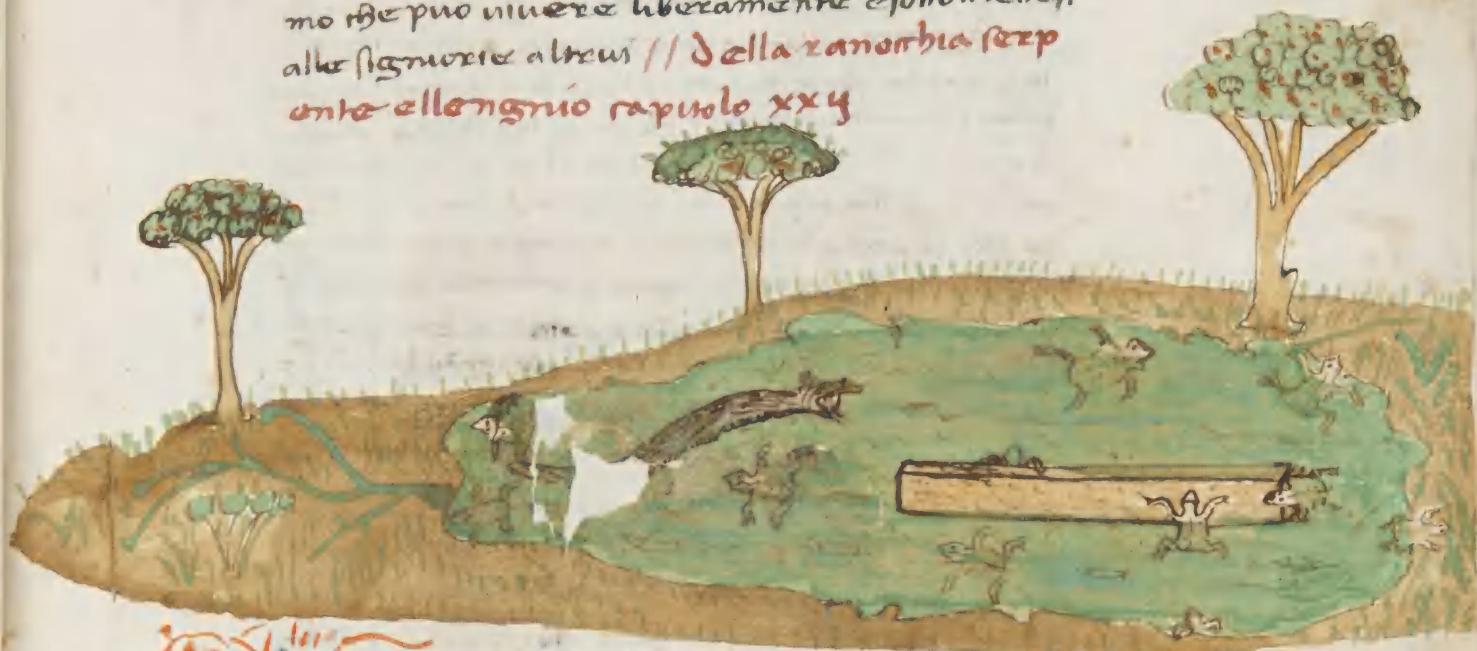 mo che puo viuere liberamente
alle signiorie altrui // Della ranocchia serp
ente ellengnio capitolo xxij